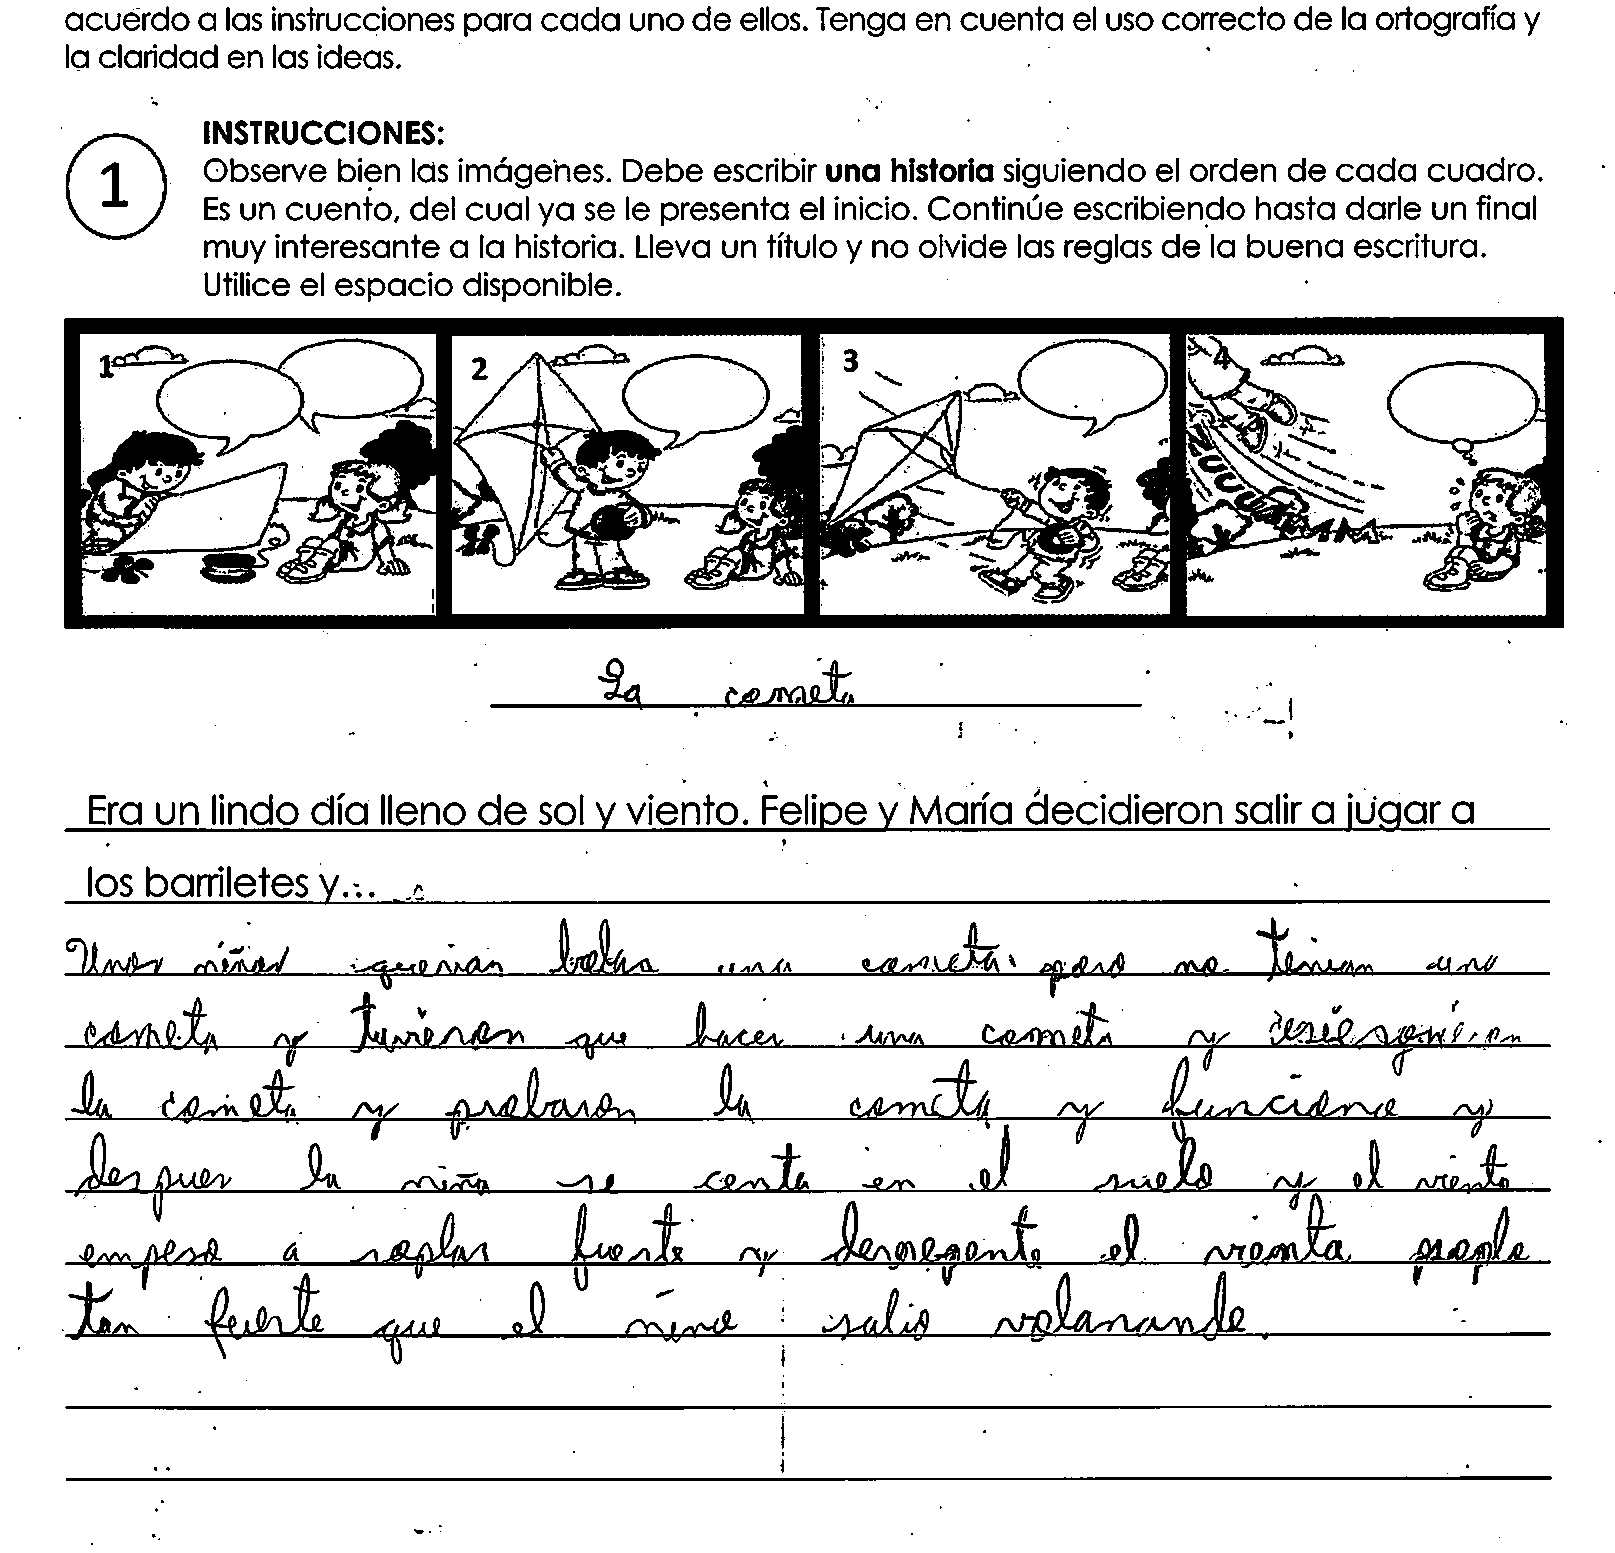 acuerdo a las instrucciones para cada uno de ellos. Tenga en cuenta el uso correcto de la ortografía y
la claridad en las ideas.
1
INSTRUCCIONES:
Observe bien las imágenes. Debe escribir una historia siguiendo el orden de cada cuadro.
Es un cuento, del cual ya se le presenta el inicio. Continúe escribiendo hasta darle un final
muy interesante a la historia. Lleva un título y no olvide las reglas de la buena escritura.
Utilice el espacio disponible.
1 2 3 4
La cometa
Era un lindo día lleno de sol y viento. Felipe y María decidieron salir a jugar a
los barriletes y...
Unos niños querian bolar una cometa pero no tenian una
cometa y tuvieron que hacer una cometa y
la cometa y probaron la cometa y funciono y
despues la niña se centa en el suelo y el viento
empeso a soplar fuerte y derrepente el vienta
tan fuerte que el nino salio volanando.